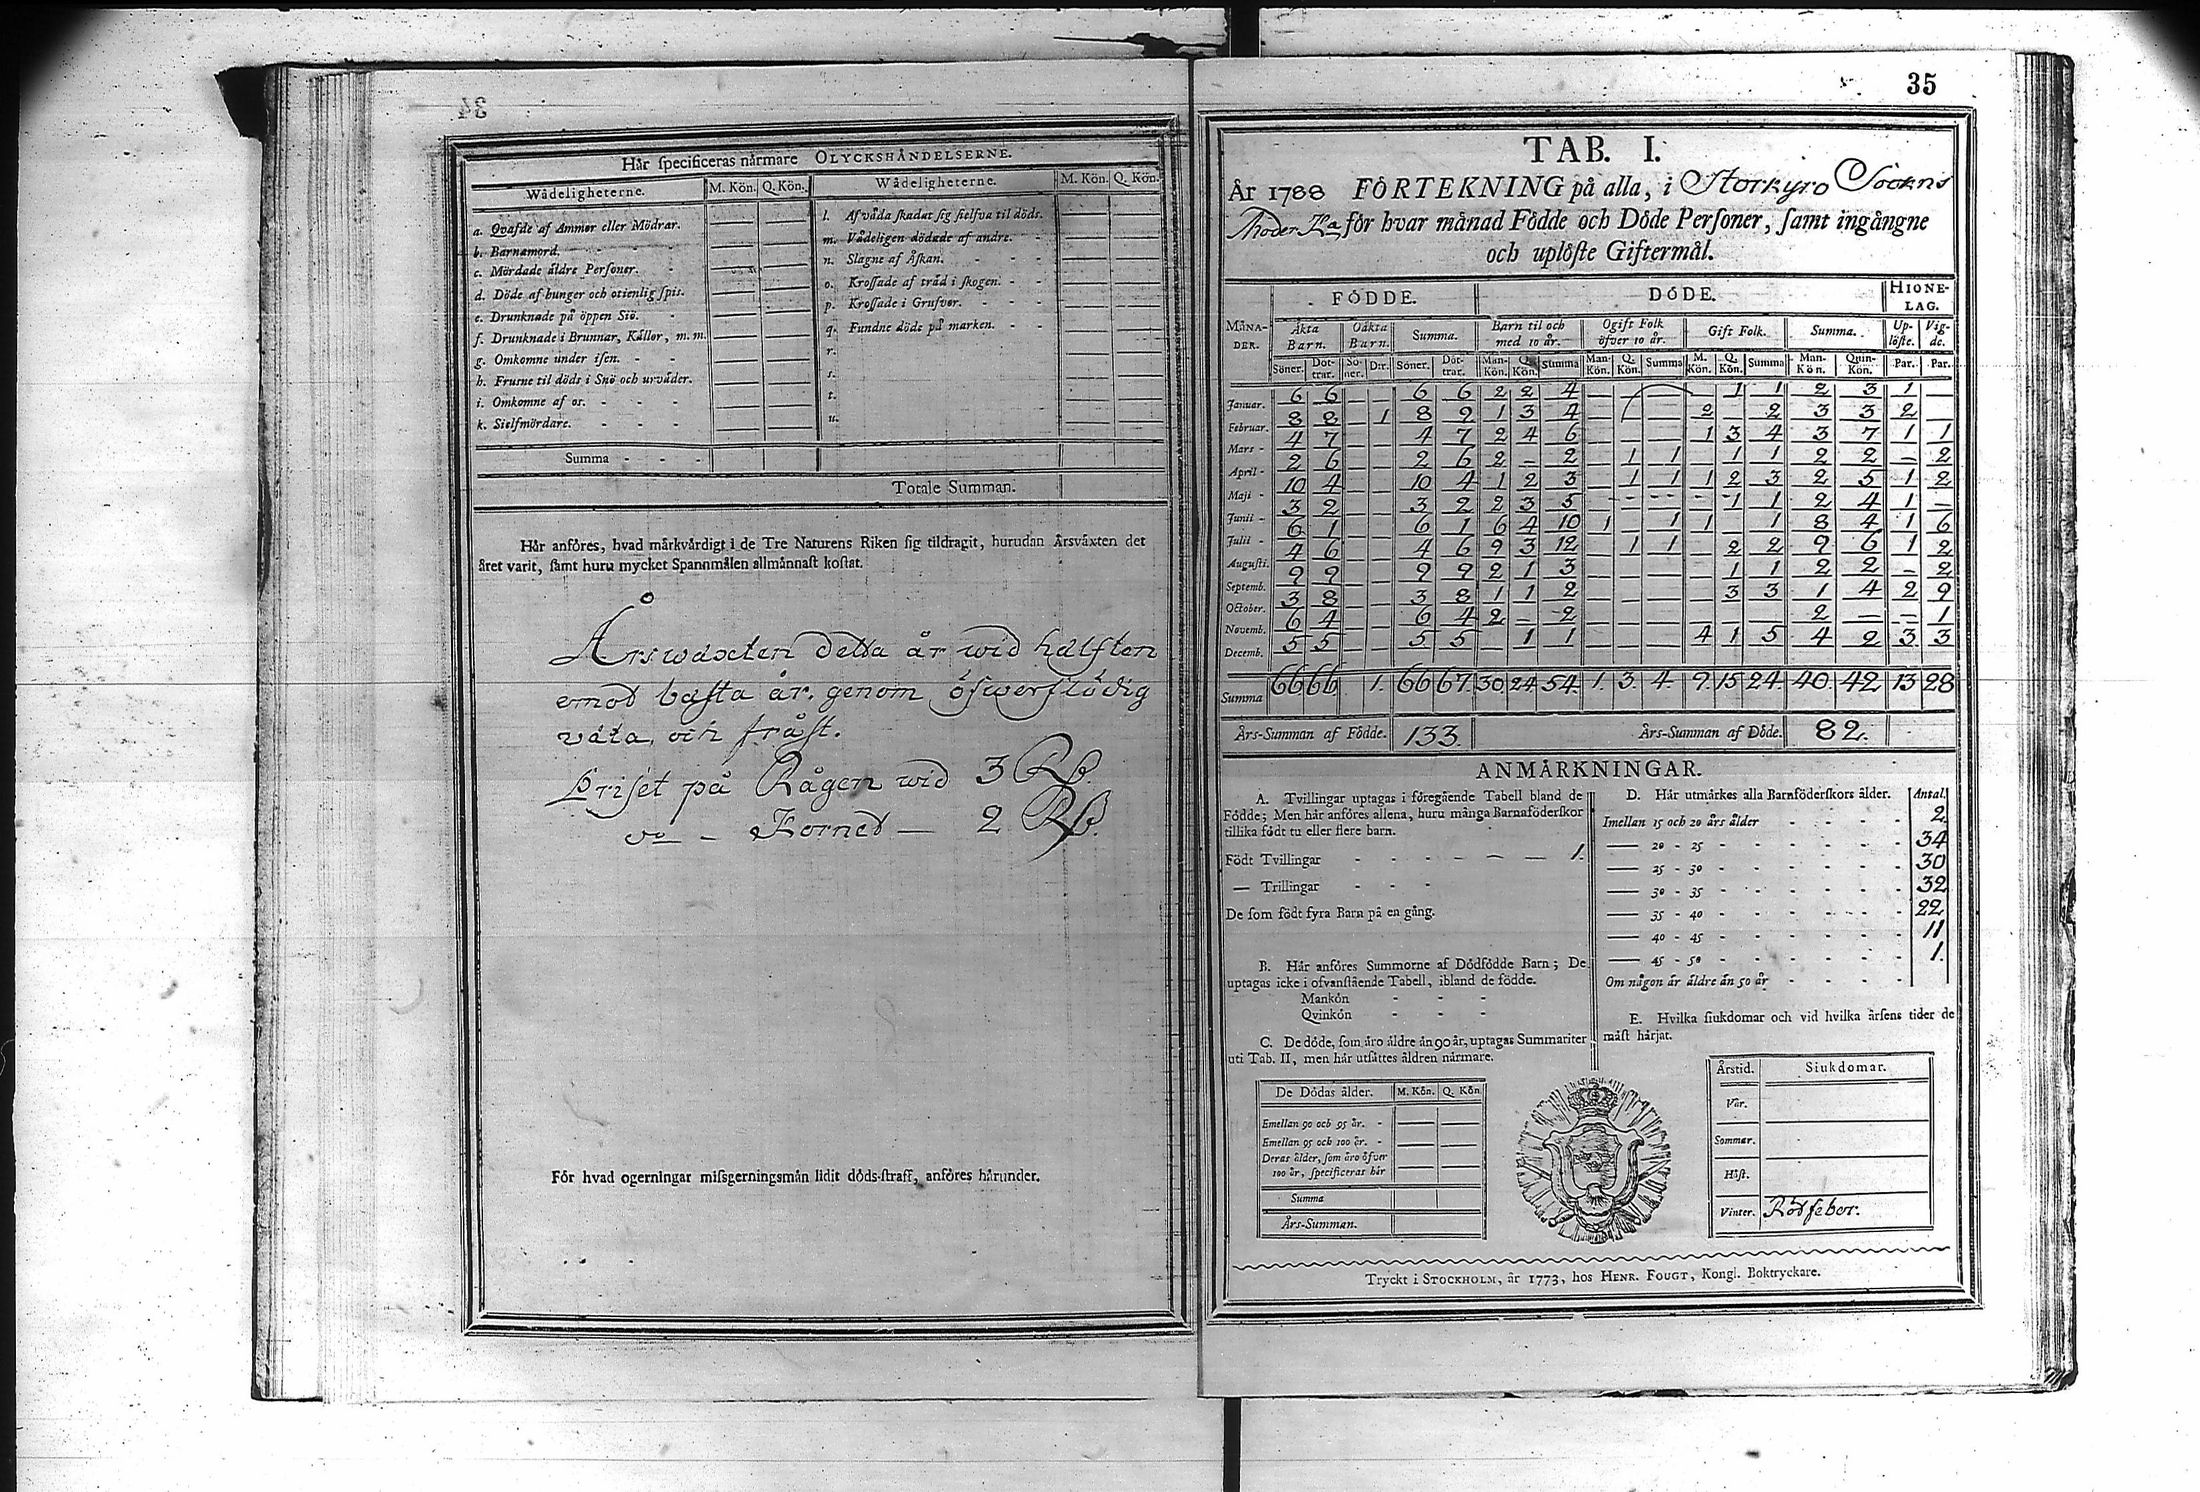 34
Hår ſpecificeras nårmare OLYCKSHÅNDELSERNE.
Wådeligheterne. M. Kön. Q. Kön. Wådeligheterne. M. Kön. Q. Kön.
a. Qvafde af Ammor eller Mödrar.
b. Barnamord.
c. Mördade åldre Perſoner.
d. Döde af hunger och otienlig ſpis.
e. Drunknade på öppen Siö.
f. Drunknade i Brunnar, Kållor, m. m.
g. Omkomne under iſen.
h. Fruſne til döds i Snö och urvåder.
i. Omkomne af os.
k. Sielfmördare.
l. Af våda ſkadat ſig ſielfva til döds.
m. Vådeligen dödade af andre.
n. Slagne af Åſkan.
o. Kroſſade af tråd i ſkogen.
p. Kroſſade i Grufvor.
q. Fundne döde på marken.
r.
s.
t.
u.
Summa
Totale Summan.
Hår anföres, hvad mårkvårdigt i de Tre Naturens Riken ſig tildragit, hurudan Årsvåxten det
året varit, ſamt huru mycket Spannmålen allmånnaſt koſtat.
Årswäxten detta år wid hälften
emot bästa år, genom öfwerflödig
väta, och fråst.
Priset på Rågen wid 3 Rß.
do - Kornet - 2 Rß.
För hvad ogerningar miſsgerningsmån lidit döds-ſtraff, anföres hårunder.
35
TAB. I.
År 1788 FÖRTEKNING på alla, i Storkyro Sockns
Moder Kka för hvar månad Födde och Döde Perſoner, ſamt ingångne
och uplöſte Giftermål.
FÖDDE. DÖDE. HIONE-
LAG.
MÅNA-
DER. Åkta
Barn. Oåkta
Barn. Summa. Barn til och
med 10 år. Ogift Folk
öfver 10 år. Gift Folk. Summa. Up-
löſte. Vig-
de.
Söner. Döt-
trar. Sö-
ner. D:r. Söner. Döt-
trar. Man-
Kön. Q.
Kön. Summa Man-
Kön. Q.
Kön. Summa M.
Kön. Q.
Kön. Summa Man-
Kön. Quin-
Kön. Par. Par.
Januar. 6 6 — — 6 6 2 2 4 — — — — 1 1 2 3 1 —
Februar. 8 8 — 1 8 9 1 3 4 — — — 2 — 2 3 3 2 —
Mars 4 7 — — 4 7 2 4 6 — — — 1 3 4 3 7 1 1
April 2 6 — — 2 6 2 — 2 — 1 1 — 1 1 2 2 — 2
Maji 10 4 — — 10 4 1 2 3 — 1 1 1 2 3 2 5 1 2
Junii 3 2 — — 3 2 2 3 5 — — — — 1 1 2 4 1 —
Julii 6 1 — — 6 1 6 4 10 1 — 1 1 — 1 8 4 1 6
Auguſti. 4 6 — — 4 6 9 3 12 — 1 1 — 2 2 9 6 1 2
Septemb. 9 9 — — 9 9 2 1 3 — — — — 1 1 2 2 — 2
October. 3 8 — — 3 8 1 1 2 — — — — 3 3 1 4 2 9
Novemb. 6 4 — — 6 4 2 — 2 — — — — — — 2 — — 1
Decemb. 5 5 — — 5 5 — 1 1 — — — 4 1 5 4 2 3 3
Summa 66 66 1. 66 67 30 24 54. 1. 3. 4. 9. 15 24. 40. 42 13 28
Års-Summan af Födde. 133. Års-Summan af Döde. 82.
ANMÅRKNINGAR.
A. Tvillingar uptagas i föregående Tabell bland de
Födde; Men hår anföres allena, huru många Barnaföderſkor
tillika födt tu eller flere barn.
Födt Tvillingar 1.
— Trillingar
De ſom födt fyra Barn på en gång.
B. Hår anföres Summorne af Dödfödde Barn; De
uptagas icke i ofvanſtående Tabell, ibland de födde.
Mankön
Qvinkön
C. De döde, ſom åro åldre ån 90 år, uptagas Summariter
uti Tab. II, men hår utſåttes åldren nårmare.
De Dödas ålder. M. Kön. Q. Kön.
Emellan 90 och 95 år.
Emellan 95 och 100 år.
Deras ålder, ſom åro öfver
100 år, ſpecificeras hår
Summa
Års-Summan.
D. Hår utmårkes alla Barnföderſkors ålder. Antal.
Imellan 15 och 20 års ålder 2
— 20 - 25 34
— 25 - 30 30
— 30 - 35 32
— 35 - 40 22
— 40 - 45 11
— 45 - 50 1.
Om någon år åldre ån 50 år
E. Hvilka ſiukdomar och vid hvilka årſens tider de
måſt hårjat.
Årstid. Siukdomar.
Vår.
Sommar.
Höſt.
Vinter. Rötfeber.
Tryckt i STOCKHOLM, år 1773, hos HENR. FOUGT, Kongl. Boktryckare.